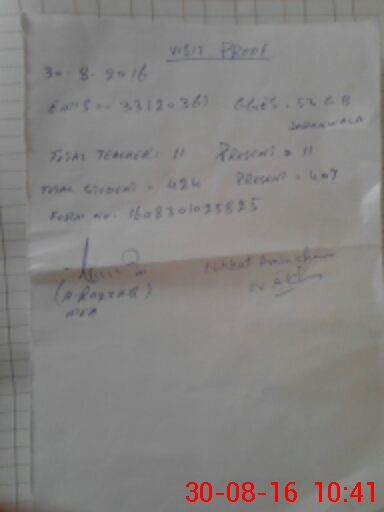 VISIT PROOF
30-8-2016
EMIS.. 33120361 GGES. 53 GB
JARANWALA
TOTAL TEACHER: 11 PRESENT = 11
TOTAL STUDENT = 424 PRESENT = 407
FORM NO. 1608301025825
(A. RAZZAQ)
MEA
30-08-16 10:41